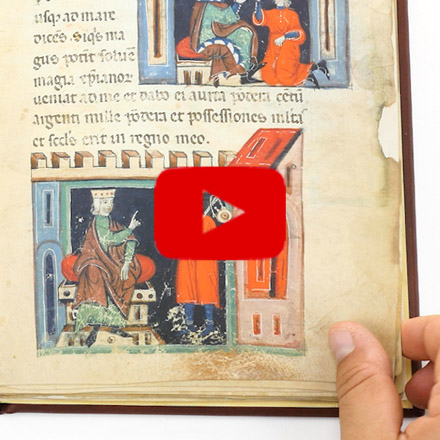 usq; ad mare
dicēs. Siqͥs ma
gus potit soluē
magia xp̄ianor
ueniat ad me et dabo ei auri pōdera cētū
argenti mille pōdera et possessiones mltā
et scd's erit in regno meo.